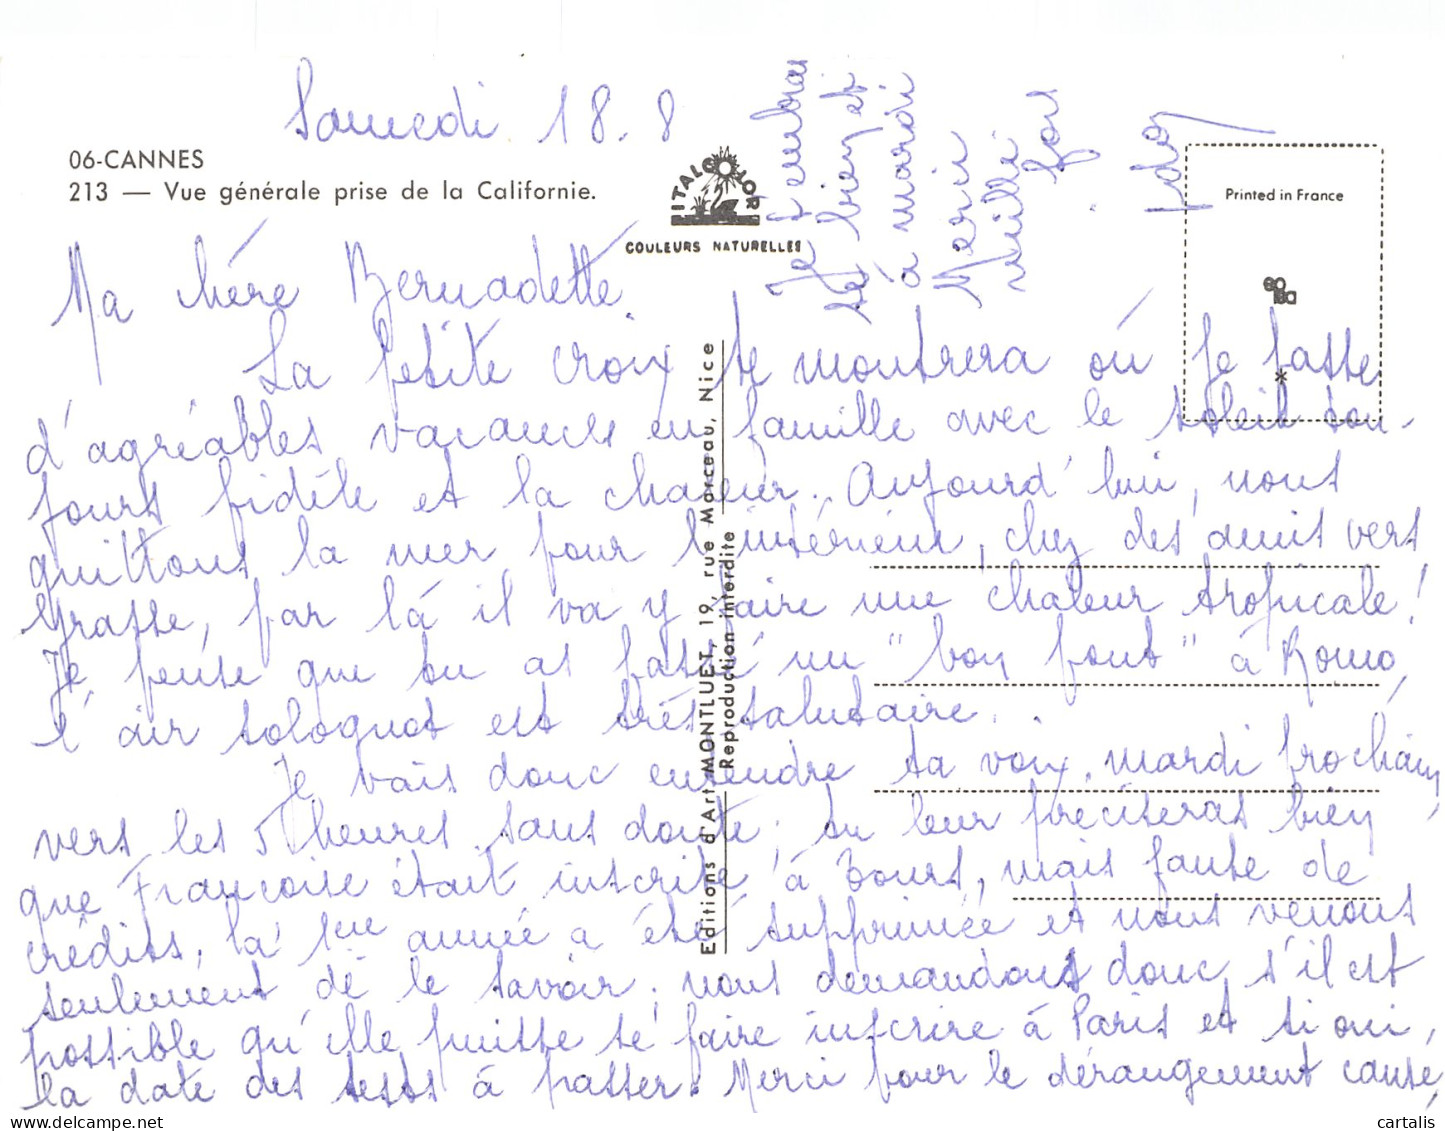 Samedi 18.8
06-CANNES
213 — Vue générale prise de la Californie.
ITALCOLOR
COULEURS NATURELLES
Printed in France
Ma chère Bernadette.
La petite croix te montrera où je passe
d'agréables vacances en famille avec le soleil tou-
jours fidèle et la chaleur. Aujourd'hui, nous
quittons la mer pour l'intérieur, chez des amis vers
Grasse, par là il va y faire une chaleur tropicale!
Je pense que tu as passé un "bon pont" à Romo
l'air solognot est très salutaire.
Je vais donc entendre ta voix, mardi prochain
vers les 5 heures sans doute; tu leur préciseras bien
que Françoise était inscrite à Tours, mais faute de
crédits, la 1ère année a été supprimée et nous venons
seulement de le savoir; nous demandons donc s'il est
possible qu'elle puisse se faire inscrire à Paris et si oui,
la date des tests à passer. Merci pour le dérangement causé,
Je t'embrasse
bien et
à mardi
Merci
mille
fois
Editions d'Art MONTLUET, 19, rue Marceau, Nice
Reproduction interdite
cartalis